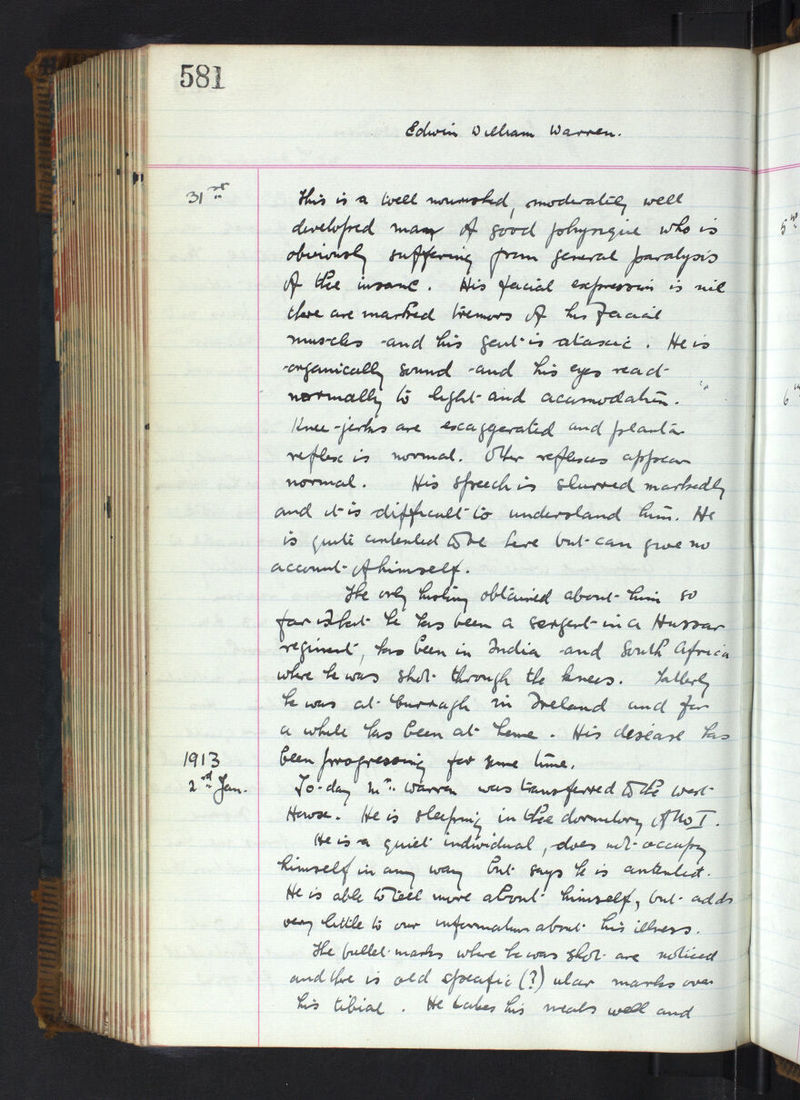 581
Edwin William Warren.
31st This is a well nourished, moderately well
developed man of good physique who is
obviously suffering from general paralysis
of the insane. His facial expression is nil
there are marked tremors of his facial
muscles and his gait is ataxic. He is
organically sound and his eyes react
normally to light and acomodation.
Knee-jerks are exaggerated and plantar
reflex is normal. Other reflexes appear
normal. His speech is slurred markedly
and it is difficult to understand him. He
is quite contented to be here but can give no
account of himself.
The only history obtained about him so
far is that he has been a sergent in a Hussar
regiment, has been in India and South Africa
where he was shot through the knees. Latterly
he was at Curragh in Ireland and for
a while has been at home. His disease has
1913 been progressing for some time.
2nd Jan. To-day Mr. Warren was transferred to the West
House. He is sleeping in the dormitory of No I.
He is a quiet individual, does not occupy
himself in any way but says he is contented.
He is able to tell more about himself, but adds
very little to our information about his illness.
The bullet marks where he was shot are noticed
and there is old specific (?) ulcer marks over
his tibiae. He takes his meals well and
5th
6th